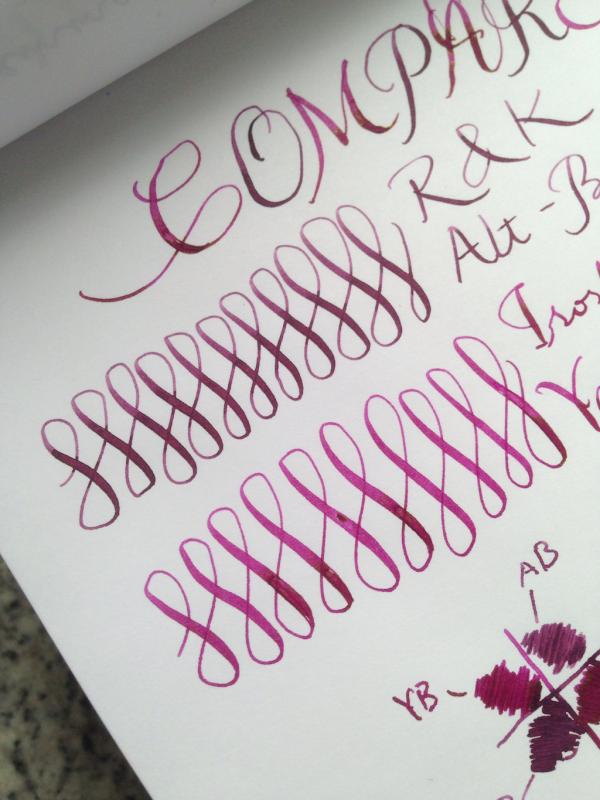 COMPAR
R & K
Alt-B
AB
YB